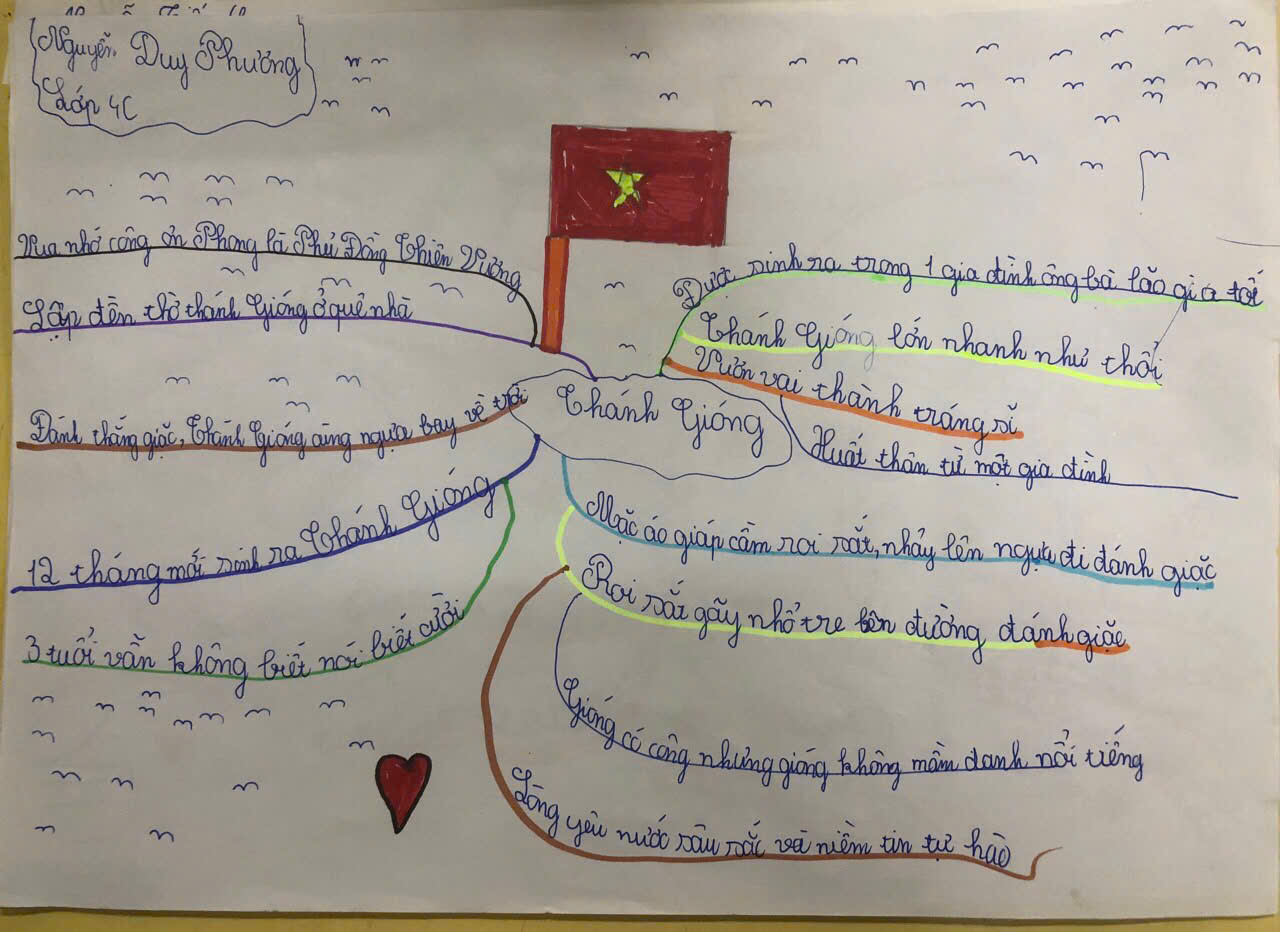 Nguyễn Duy Phương
Lớp 4C
Vua nhớ công ơn Phong là Phù Đổng Thiên Vương
Lập đền thờ thánh Gióng ở quê nhà
Đánh thắng giặc, Thánh Gióng cùng ngựa bay về trời
12 tháng mới sinh ra Thánh Gióng
3 tuổi vẫn không biết nói biết cười
Thánh Gióng
Được sinh ra trong 1 gia đình ông bà lão già tốt
Thánh Gióng lớn nhanh như thổi
Vươn vai thành tráng sĩ
Xuất thân từ một gia đình
Mặc áo giáp cầm roi sắt, nhảy lên ngựa đi đánh giặc
Roi sắt gãy nhổ tre bên đường đánh giặc
Gióng có công nhưng gióng không mầm danh nổi tiếng
Lòng yêu nước sâu sắc và niềm tin tự hào